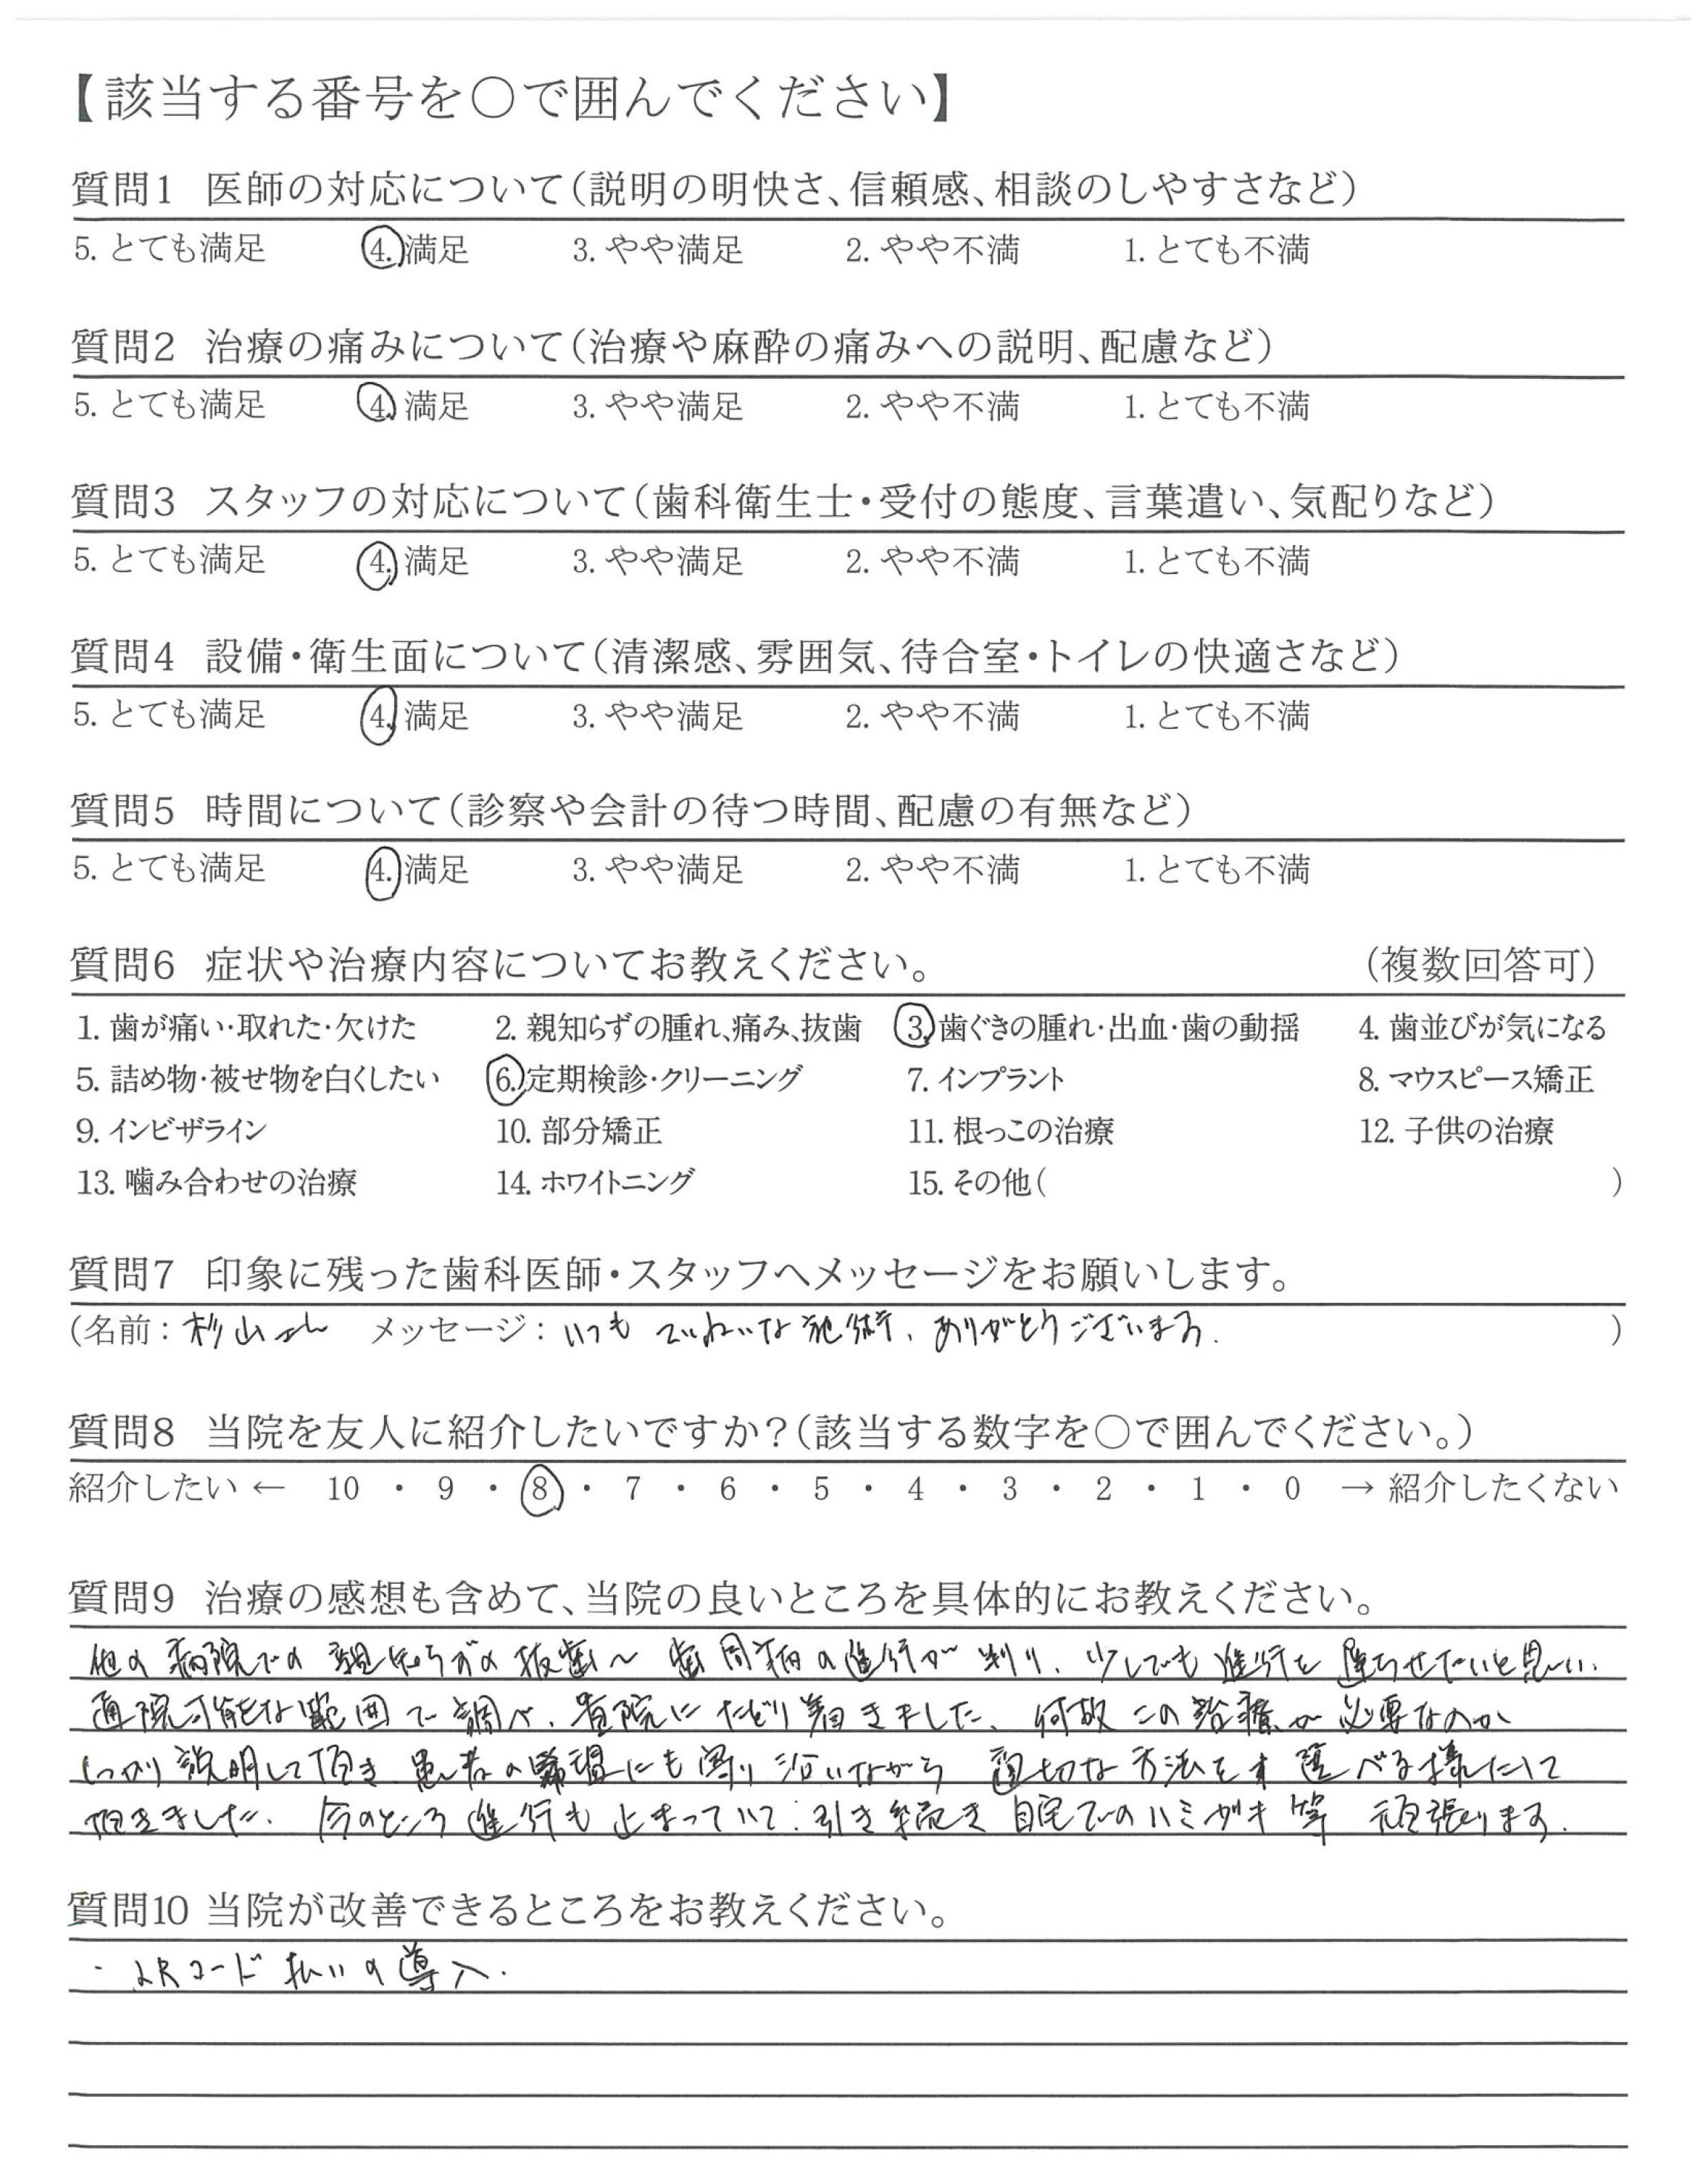 【該当する番号を○で囲んでください】
質問1 医師の対応について(説明の明快さ、信頼感、相談のしやすさなど)
5. とても満足 4. 満足 3. やや満足 2. やや不満 1. とても不満
質問2 治療の痛みについて(治療や麻酔の痛みへの説明、配慮など)
5. とても満足 4. 満足 3. やや満足 2. やや不満 1. とても不満
質問3 スタッフの対応について(歯科衛生士・受付の態度、言葉遣い、気配りなど)
5. とても満足 4. 満足 3. やや満足 2. やや不満 1. とても不満
質問4 設備・衛生面について(清潔感、雰囲気、待合室・トイレの快適さなど)
5. とても満足 4. 満足 3. やや満足 2. やや不満 1. とても不満
質問5 時間について(診察や会計の待つ時間、配慮の有無など)
5. とても満足 4. 満足 3. やや満足 2. やや不満 1. とても不満
質問6 症状や治療内容についてお教えください。 (複数回答可)
1. 歯が痛い・取れた・欠けた 2. 親知らずの腫れ、痛み、抜歯 3. 歯ぐきの腫れ・出血・歯の動揺 4. 歯並びが気になる
5. 詰め物・被せ物を白くしたい 6. 定期検診・クリーニング 7. インプラント 8. マウスピース矯正
9. インビザライン 10. 部分矯正 11. 根っこの治療 12. 子供の治療
13. 噛み合わせの治療 14. ホワイトニング 15. その他( )
質問7 印象に残った歯科医師・スタッフへメッセージをお願いします。
(名前: 杉山さん メッセージ: いつも ていねいな施術、ありがとうございます. )
質問8 当院を友人に紹介したいですか?(該当する数字を○で囲んでください。)
紹介したい ← 10 ・ 9 ・ 8 ・ 7 ・ 6 ・ 5 ・ 4 ・ 3 ・ 2 ・ 1 ・ 0 → 紹介したくない
質問9 治療の感想も含めて、当院の良いところを具体的にお教えください。
他の病院での親知らずの抜歯〜歯周病の進行が判り、少しでも進行を遅らせたいと思い、
通院可能な範囲で調べ、貴院にたどり着きました、何故この治療が必要なのか
しっかり説明して頂き 患者の にも寄り沿いながら 適切な方法を 選べる様にして
頂きました. 今のところ進行も止まっていて、引き続き 自宅でのハミガキ等 頑張ります.
質問10 当院が改善できるところをお教えください。
・QRコード払いの導入.